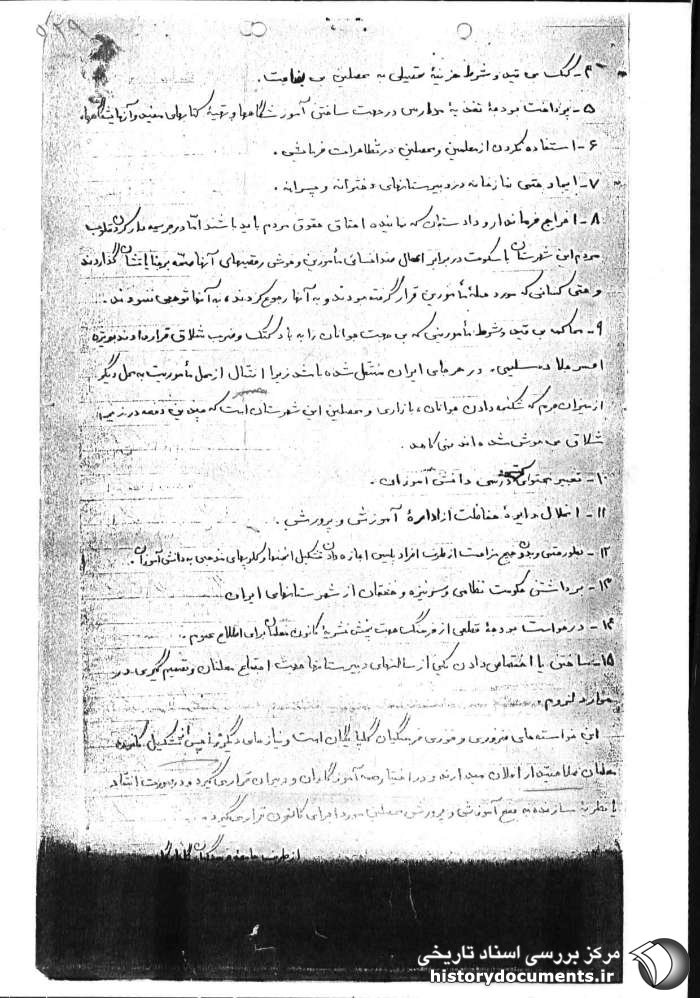 ۵۲۹
۴- کمک بی قید و شرط هزینهٔ تحصیلی به محصلین بی بضاعت.
۵- پرداخت بودجهٔ نقد به مدارس در جهت ساختن آموزشگاهها و تهیهٔ کتابهای مفید و آزمایشگاهها.
۶- استفاده نکردن از معلمین و محصلین در تظاهرات فرمایشی.
۷- ایجاد حتمی نمازخانه در دبیرستانهای دخترانه و پسرانه.
۸- اخراج فرماندار و دادستان که نماینده احقاق حقوق مردم باید باشند اما در جریحه دار کردن قلوب
مردم این شهرستان با سکوت در برابر اعمال ضد انسانی مأمورین و خوش رقصیهای آنها صحه بر جنایاتشان گذاردند
و حتی کسانی که مورد حمله مأمورین قرار گرفته بودند و به آنها رجوع کردند، به آنها توجهی ننمودند.
۹- محاکمه بی قید و شرط مأمورینی که بی جهت جوانان را به باد کتک و ضرب شلاق قرار دادند بویژه
افسر جلاد سلیمی. در هر جای ایران منتقل شده باشد زیرا انتقال از محل مأموریت به محل دیگر
از میزان جرم که شکنجه دادن جوانان، بازاری و محصلین این شهرستان است که چندین دفعه در زیر
شلاق بی هوش شده اند نمی کاهد.
۱۰- تغییر محتوای کتب درسی دانش آموزان.
۱۱- انحلال دایرهٔ حفاظت از ادارهٔ آموزش و پرورش.
۱۲- بطور حتمی و بدون هیچ مزاحمت از طرف افراد پلیس اجازه دادن تشکیل انجمنها و کلوپهای مذهبی به دانش آموزان.
۱۳- برداشتن حکومت نظامی و سرنیزه و خفقان از شهرستانهای ایران
۱۴- درخواست بودجهٔ قطعی از فرهنگ جهت پخش نشریهٔ کانون معلمان برای اطلاع عموم.
۱۵- ساختن یا اختصاص دادن یکی از سالنهای دبیرستانها جهت اجتماع معلمان و تصمیم گیری در
موارد لزوم.
این خواسته های ضروری و فوری فرهنگیان گلپایگان است و نیازهای دیگر را پس از تشکیل کانون
معلمان صلاحیتدار اعلان میدارند و در اختیار همه آموزگاران و دبیران قرار می گیرد و در صورت انتقاد
یا نظریهٔ سازنده به نفع آموزشی و پرورش محصلین مورد اجرای کانون قرار می گیرد.
از طرف جامعهٔ فرهنگیان گلپایگان
مرکز بررسی اسناد تاریخی
historydocuments.ir